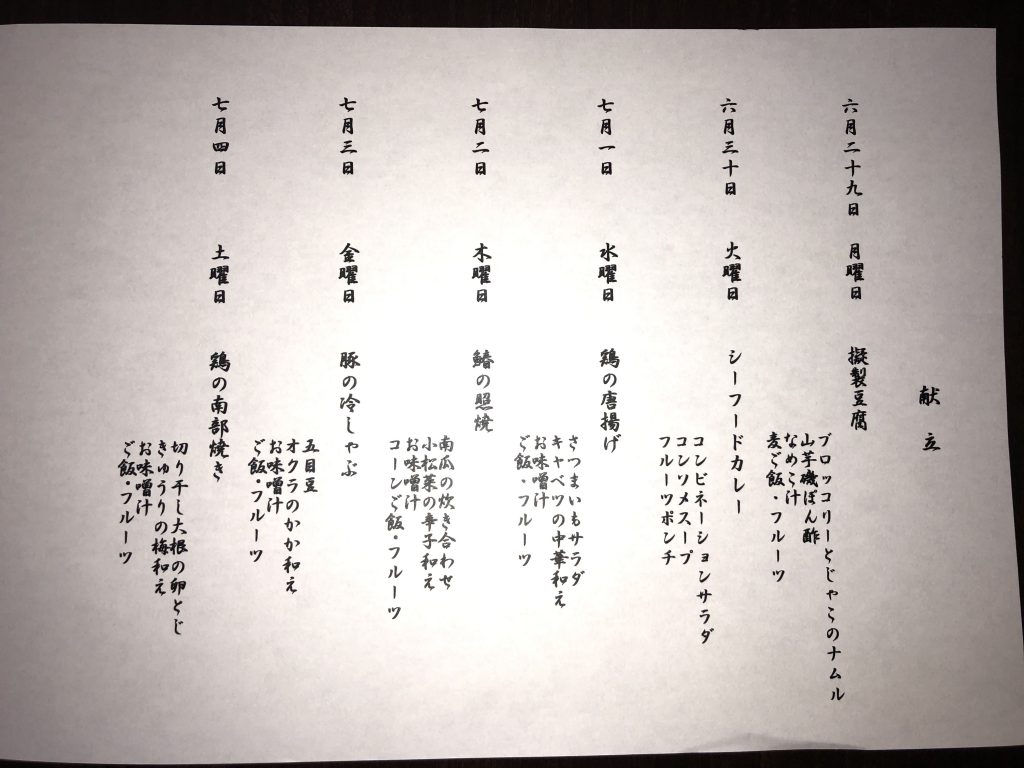 献立
六月二十九日 月曜日 擬製豆腐
ブロッコリーとじゃこのナムル
山芋磯ぽん酢
なめこ汁
麦ご飯・フルーツ
六月三十日 火曜日 シーフードカレー
コンビネーションサラダ
コンソメスープ
フルーツポンチ
七月一日 水曜日 鶏の唐揚げ
さつまいもサラダ
キャベツの中華和え
お味噌汁
ご飯・フルーツ
七月二日 木曜日 鰆の照焼
南瓜の炊き合わせ
小松菜の辛子和え
お味噌汁
コーンご飯・フルーツ
七月三日 金曜日 豚の冷しゃぶ
五目豆
オクラのかか和え
お味噌汁
ご飯・フルーツ
七月四日 土曜日 鶏の南部焼き
切り干し大根の卵とじ
きゅうりの梅和え
お味噌汁
ご飯・フルーツ